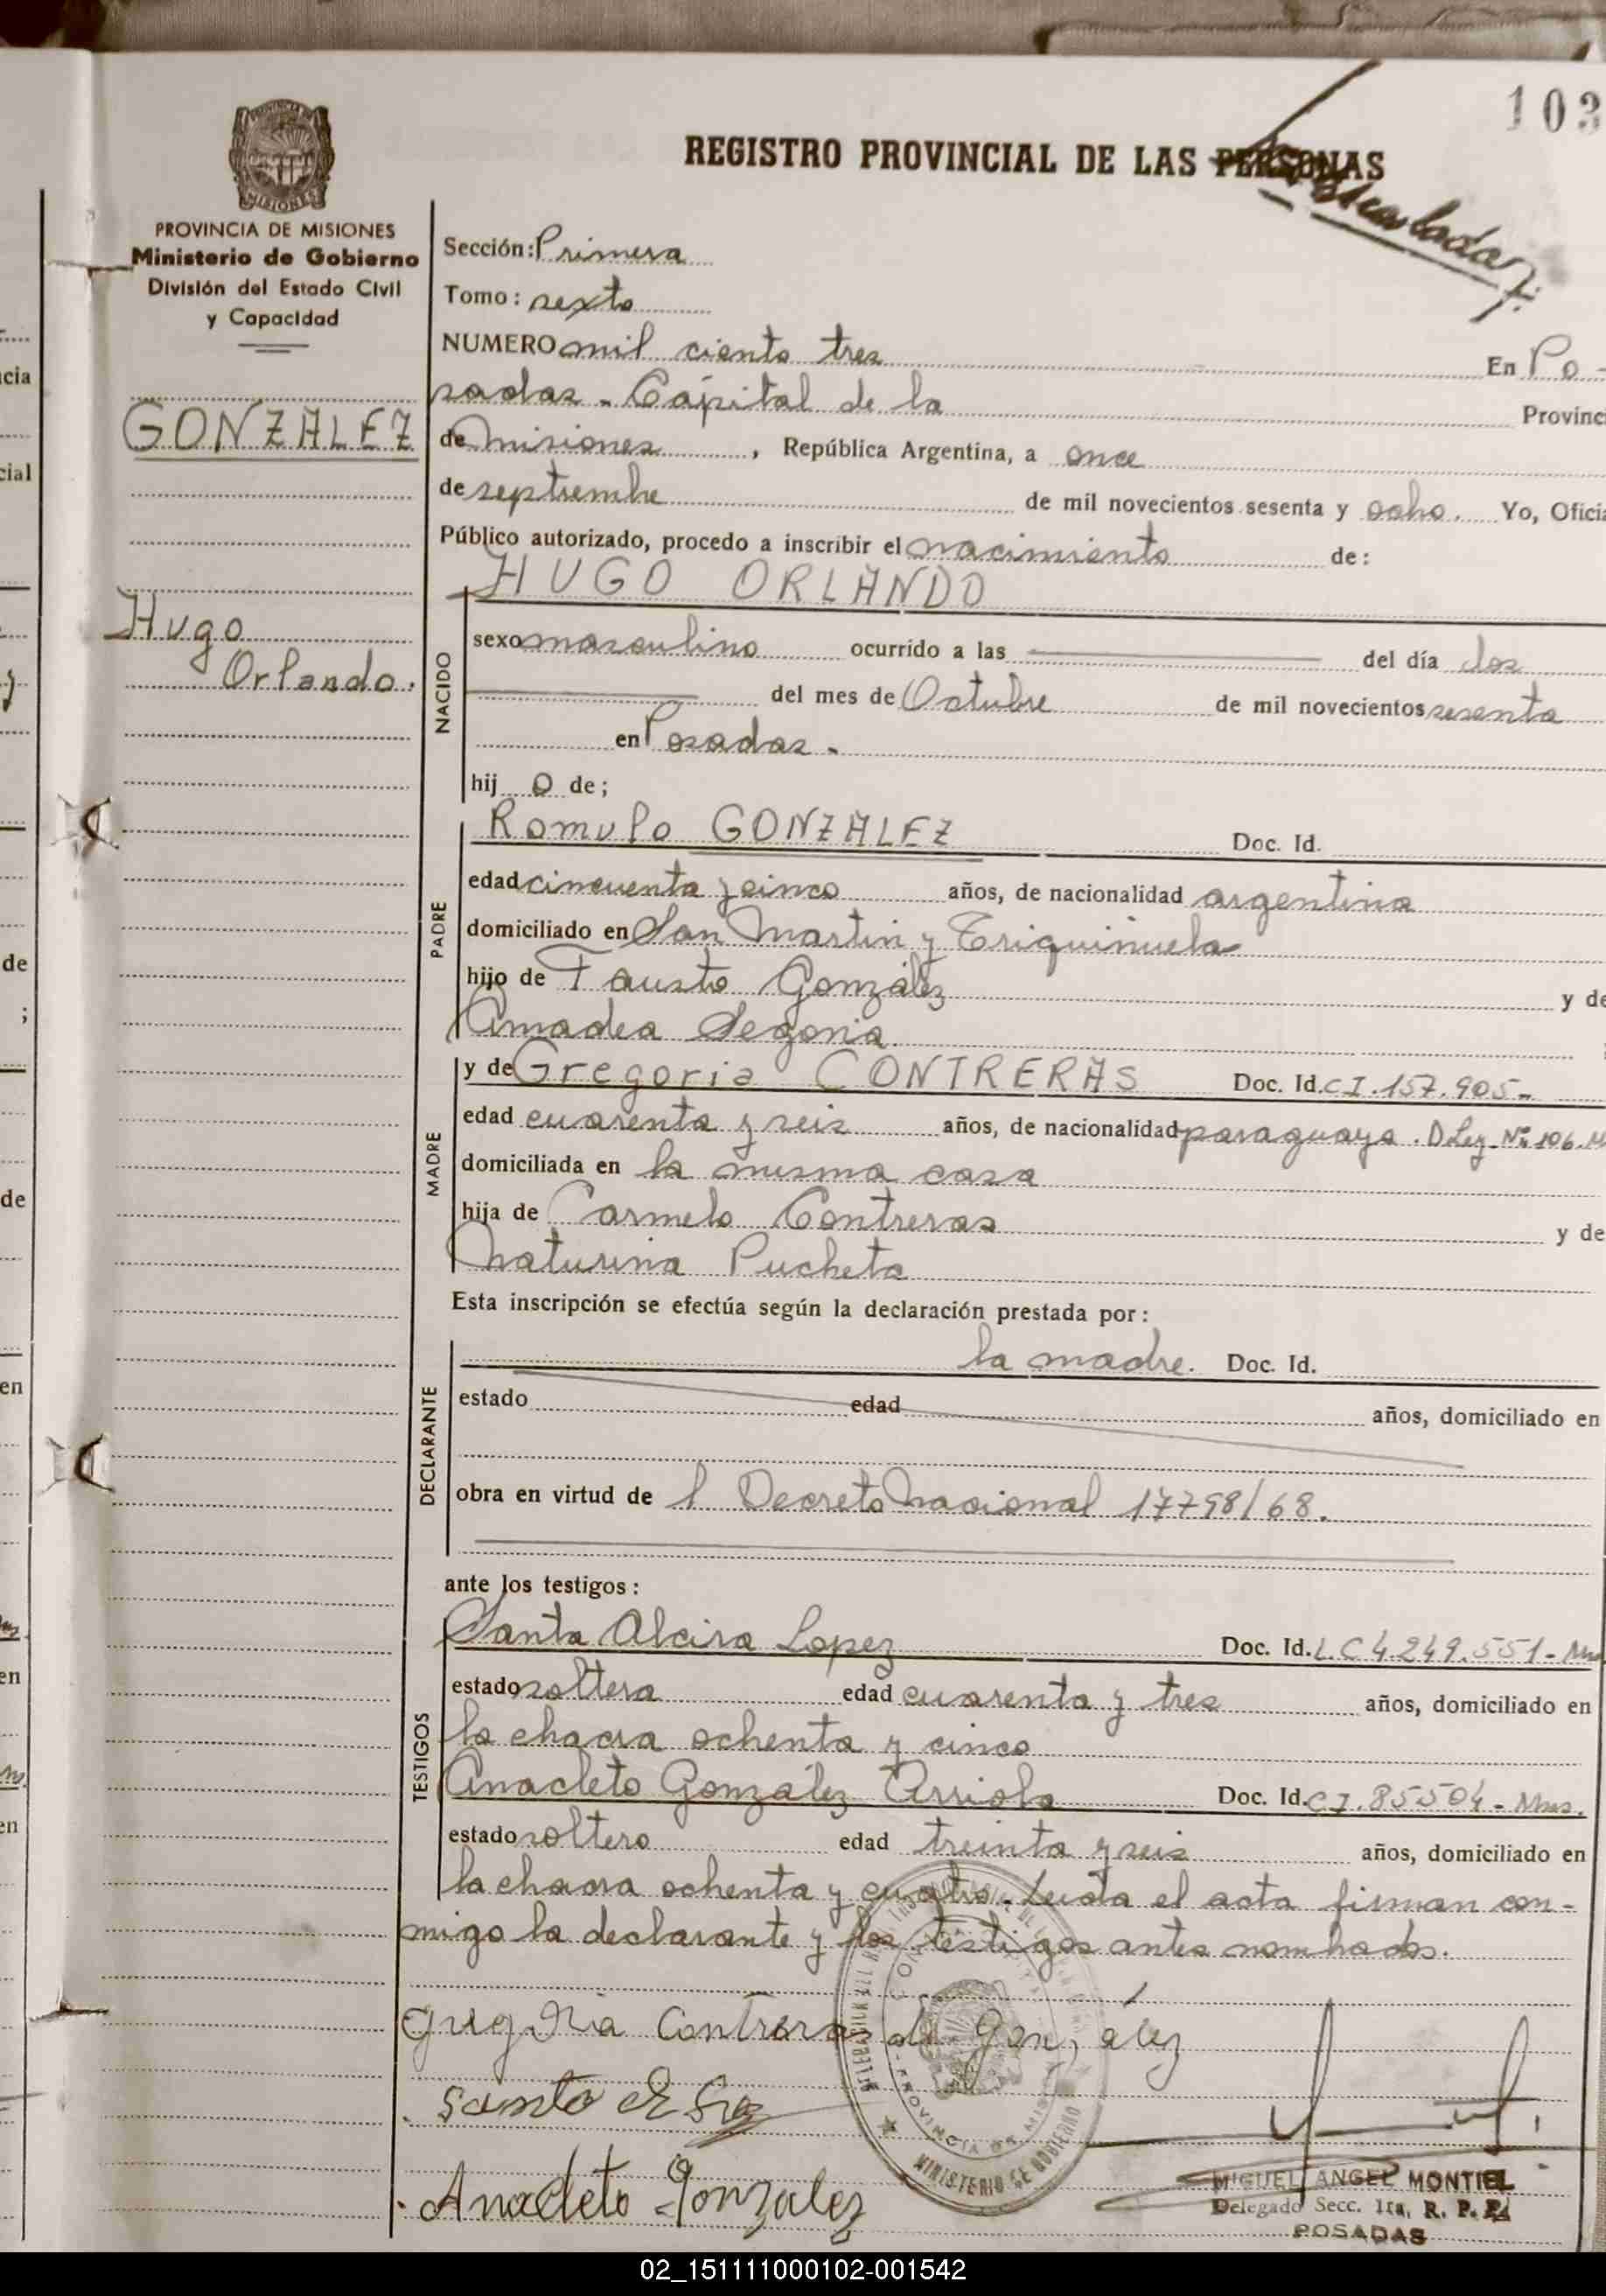 103
REGISTRO PROVINCIAL DE LAS PERSONAS
PROVINCIA DE MISIONES
Ministerio de Gobierno
División del Estado Civil
y Capacidad
Sección: Primera
Tomo: sexto
NUMERO mil ciento tres En Po-
sadas - Cápital de la Provinc
de Misiones, República Argentina, a once
de septiembre de mil novecientos sesenta y ocho. Yo, Ofici
Público autorizado, procedo a inscribir el nacimiento de:
GONZALEZ
Hugo
Orlando.
HUGO ORLANDO
NACIDO
sexo masculino ocurrido a las del día dos
del mes de Octubre de mil novecientos sesenta
en Posadas.
hijo de;
PADRE
Romulo GONZALEZ Doc. Id.
edad cincuenta y cinco años, de nacionalidad argentina
domiciliado en San Martin y Triquiñuela
hijo de Fausto González y de
Amadea Segovia.
MADRE
y de Gregoria CONTRERAS Doc. Id. C I. 157.905-
edad cuarenta y seis años, de nacionalidad paraguaya. D Ley Nº 106.
domiciliada en la misma casa
hija de Carmelo Contreras y de
Maturina Pucheta
Esta inscripción se efectúa según la declaración prestada por:
DECLARANTE
la madre. Doc. Id.
estado edad años, domiciliado en
obra en virtud de l Decreto Nacional 17798/68.
ante los testigos:
TESTIGOS
Santa Alcira Lopez Doc. Id. L. C 4.249.551-
estado soltera edad cuarenta y tres años, domiciliado en
la chacra ochenta y cinco
Anacleto González Arriola Doc. Id. C I. 85504 - Mns.
estado soltero edad treinta y seis años, domiciliado en
la chacra ochenta y cuatro. Leida el acta firman con-
migo la declarante y los testigos antes nombados.
Gregoria Contreras de González
Anacleto Gonzalez
PROVINCIA DE MISIONES
MINISTERIO DE GOBIERNO
MIGUEL ANGEL MONTIEL
Delegado Secc. 1ra. R. P. P.
POSADAS
02_151111000102-001542